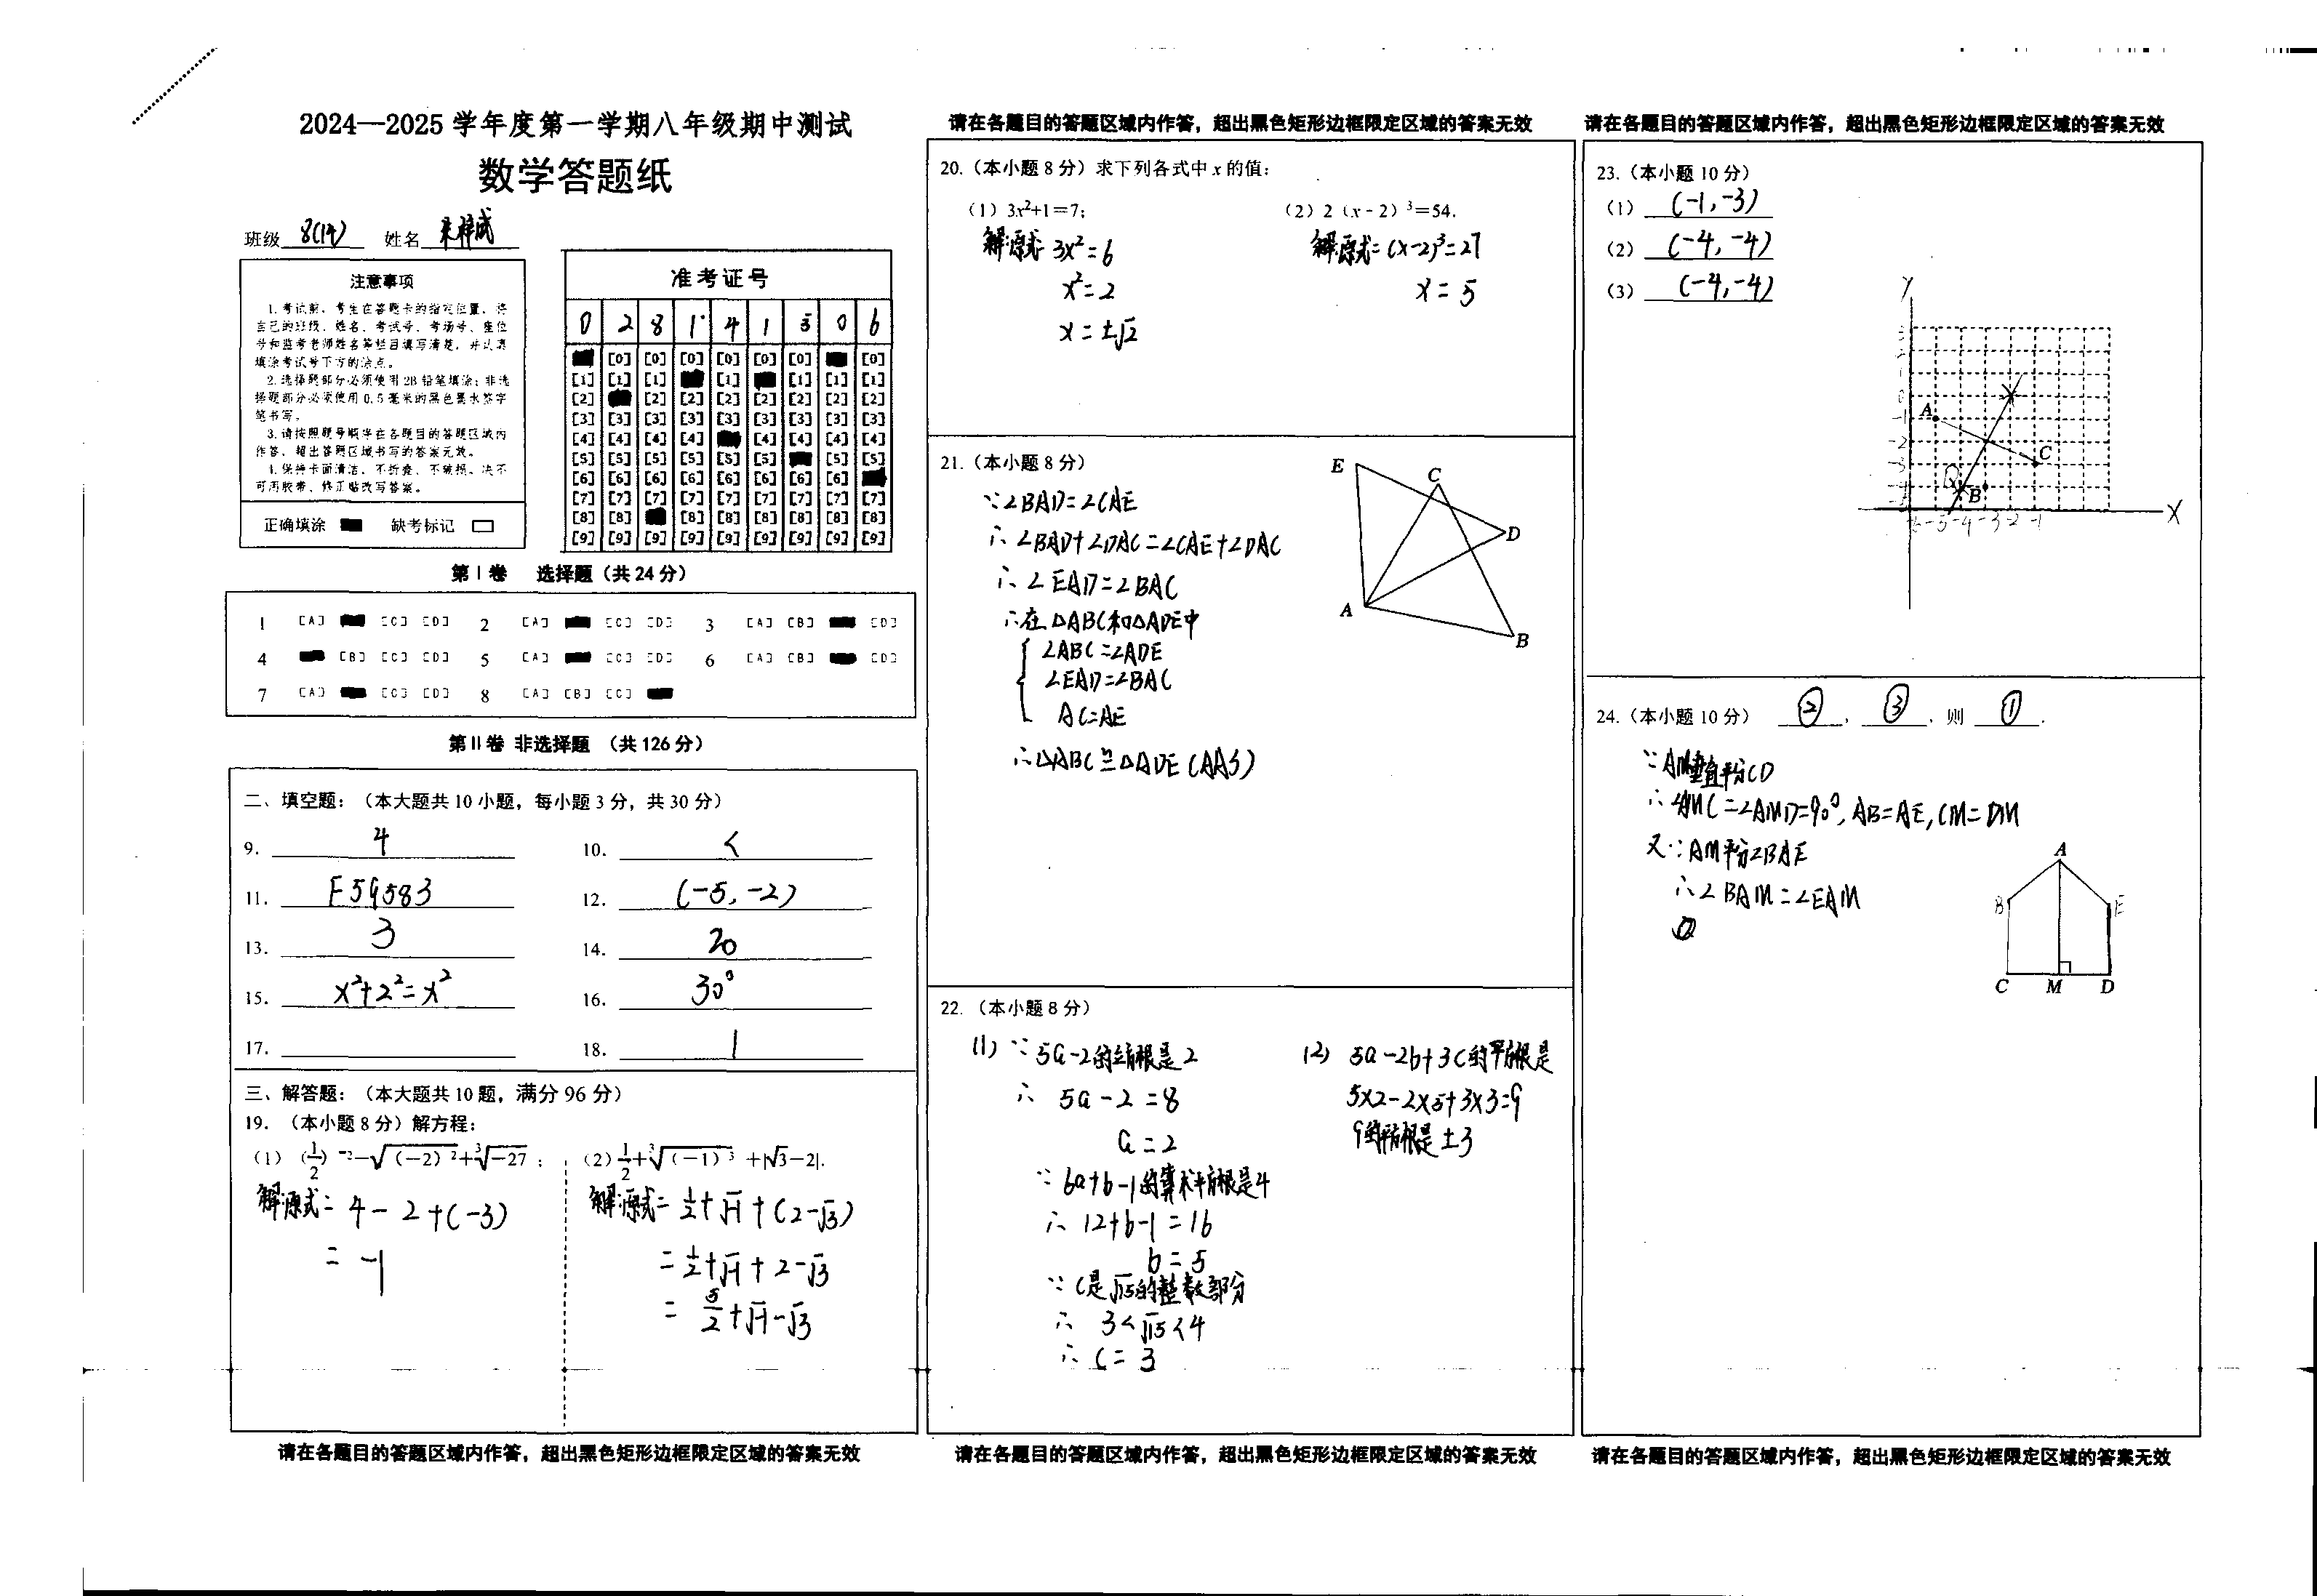 2024—2025 学年度第一学期八年级期中测试
数学答题纸
班级 8(14) 姓名
注意事项
1.考试前，考生在答题卡的指定位置，将
自己的班级、姓名、考试号、考场号、座位
号和监考老师姓名等栏目填写清楚，并认真
填涂考试号下方的涂点。
2.选择题部分必须使用 2B 铅笔填涂；非选
择题部分必须使用 0.5 毫米的黑色墨水签字
笔书写。
3.请按照题号顺序在各题目的答题区域内
作答，超出答题区域书写的答案无效。
4.保持卡面清洁、不折叠、不破损。决不
可用胶带、修正贴改写答案。
正确填涂 缺考标记
准考证号
0 2 8 1 4 1 5 0 6
[0] [0] [0] [0] [0] [0] [0]
[1] [1] [1] [1] [1] [1] [1]
[2] [2] [2] [2] [2] [2] [2] [2]
[3] [3] [3] [3] [3] [3] [3] [3] [3]
[4] [4] [4] [4] [4] [4] [4] [4]
[5] [5] [5] [5] [5] [5] [5] [5]
[6] [6] [6] [6] [6] [6] [6] [6]
[7] [7] [7] [7] [7] [7] [7] [7] [7]
[8] [8] [8] [8] [8] [8] [8] [8]
[9] [9] [9] [9] [9] [9] [9] [9] [9]
第 I 卷 选择题（共 24 分）
1 [A] [C] [D] 2 [A] [C] [D] 3 [A] [B] [D]
4 [B] [C] [D] 5 [A] [C] [D] 6 [A] [B] [D]
7 [A] [C] [D] 8 [A] [B] [C]
第 II 卷 非选择题 （共 126 分）
二、填空题：（本大题共 10 小题，每小题 3 分，共 30 分）
9. 4 10. <
11. F59583 12. (-5, -2)
13. 3 14. 20
15. x²+2²=x² 16. 30°
17. 18. 1
三、解答题：（本大题共 10 题，满分 96 分）
19. （本小题 8 分）解方程：
（1） (1/2)⁻²−√(−2)²+∛−27 ；
解:原式= 4 - 2 +(-3)
= -1
（2）1/2+∛(−1)³ +|√3−2|.
解:原式= 1/2+√-1+(2-√3)
= 1/2+√-1+2-√3
= 5/2+√-1-√3
请在各题目的答题区域内作答，超出黑色矩形边框限定区域的答案无效
请在各题目的答题区域内作答，超出黑色矩形边框限定区域的答案无效
20.（本小题 8 分）求下列各式中 x 的值：
（1）3x²+1＝7；
解:原式 3x²=6
x²=2
x=±√2
（2）2（x－2）³＝54.
解:原式=(x-2)³=27
x=5
21.（本小题 8 分）
∵∠BAD=∠CAE
∴∠BAD+∠DAC=∠CAE+∠DAC
∴∠EAD=∠BAC
∴在△ABC和△ADE中
∠ABC=∠ADE
∠EAD=∠BAC
AC=AE
∴△ABC≌△ADE(AAS)
E
C
D
A
B
22. （本小题 8 分）
(1) ∵5a-2的立方根是2
∴ 5a-2=8
a=2
∵6a+b-1的算术平方根是4
∴ 12+b-1=16
b=5
∵C是√15的整数部分
∴ 3<√15<4
∴ C=3
(2) 5a-2b+3c的平方根是
5×2-2×5+3×3=9
9的平方根是±3
请在各题目的答题区域内作答，超出黑色矩形边框限定区域的答案无效
请在各题目的答题区域内作答，超出黑色矩形边框限定区域的答案无效
23.（本小题 10 分）
（1） (-1,-3)
（2） (-4,-4)
（3） (-4,-4)
Y
A
C
B
X
24.（本小题 10 分） ②，③，则 ①.
∵AM垂直平分CD
∴∠AMC=∠AMD=90°,AB=AE,CM=DM
又∵AM平分∠BAE
∴∠BAM=∠EAM
A
B E
C M D
请在各题目的答题区域内作答，超出黑色矩形边框限定区域的答案无效